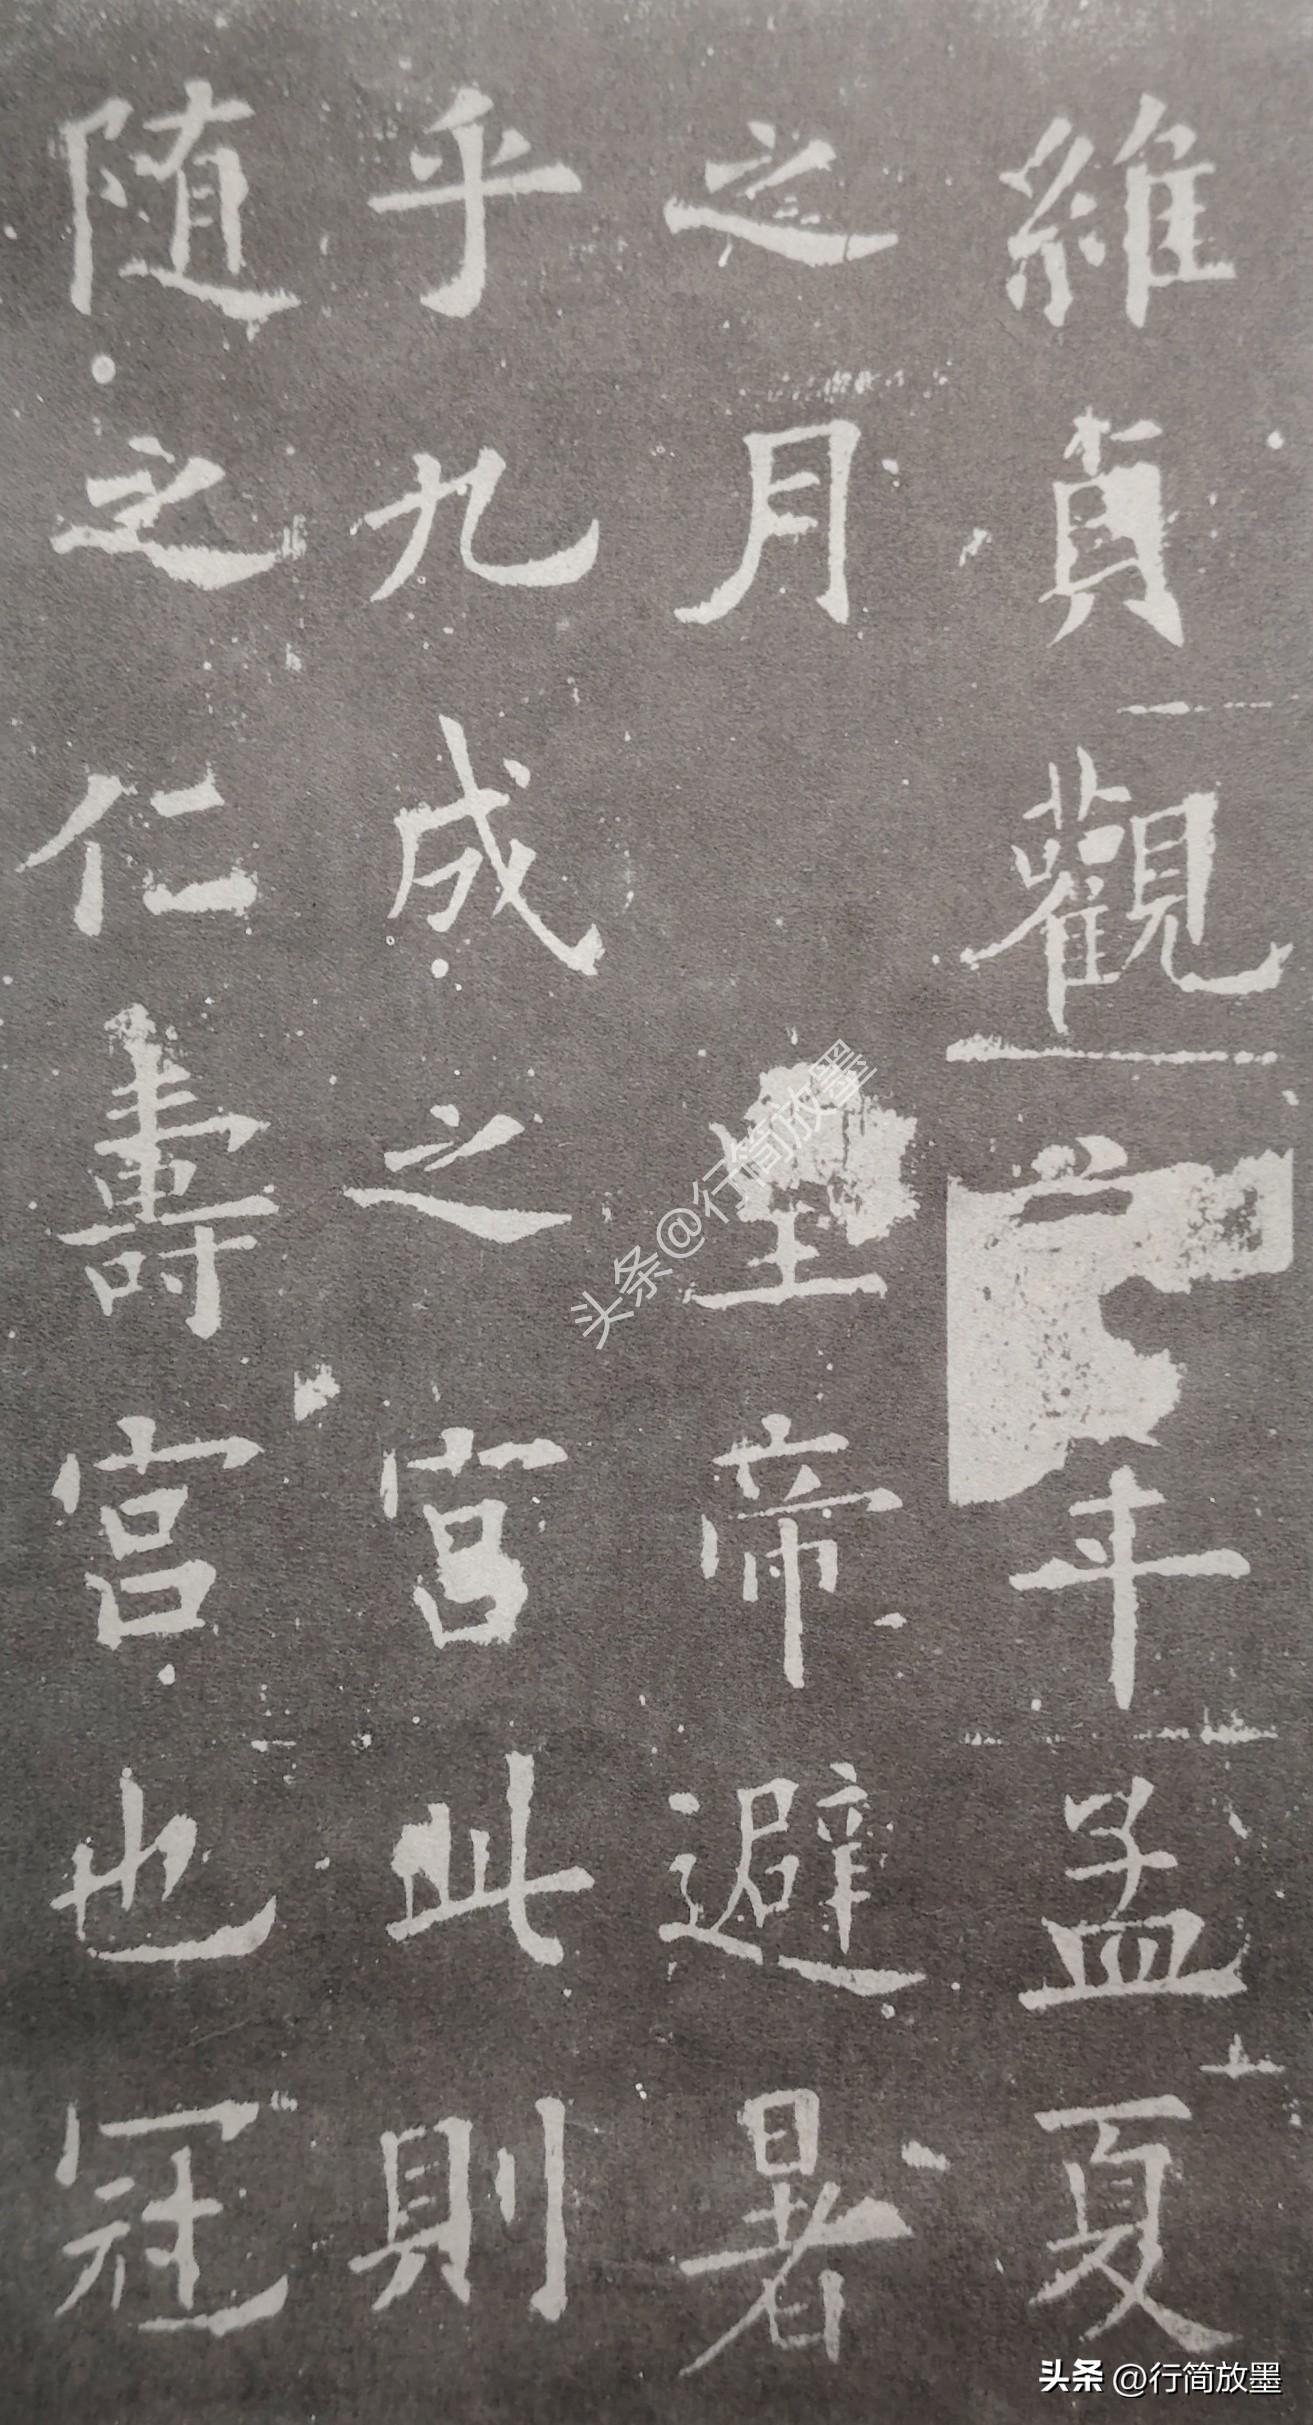 維貞觀年孟夏
之月 聖帝避暑
乎九成之宮此則
随之仁壽宮也冠
头条@行简放墨
头条 @行简放墨